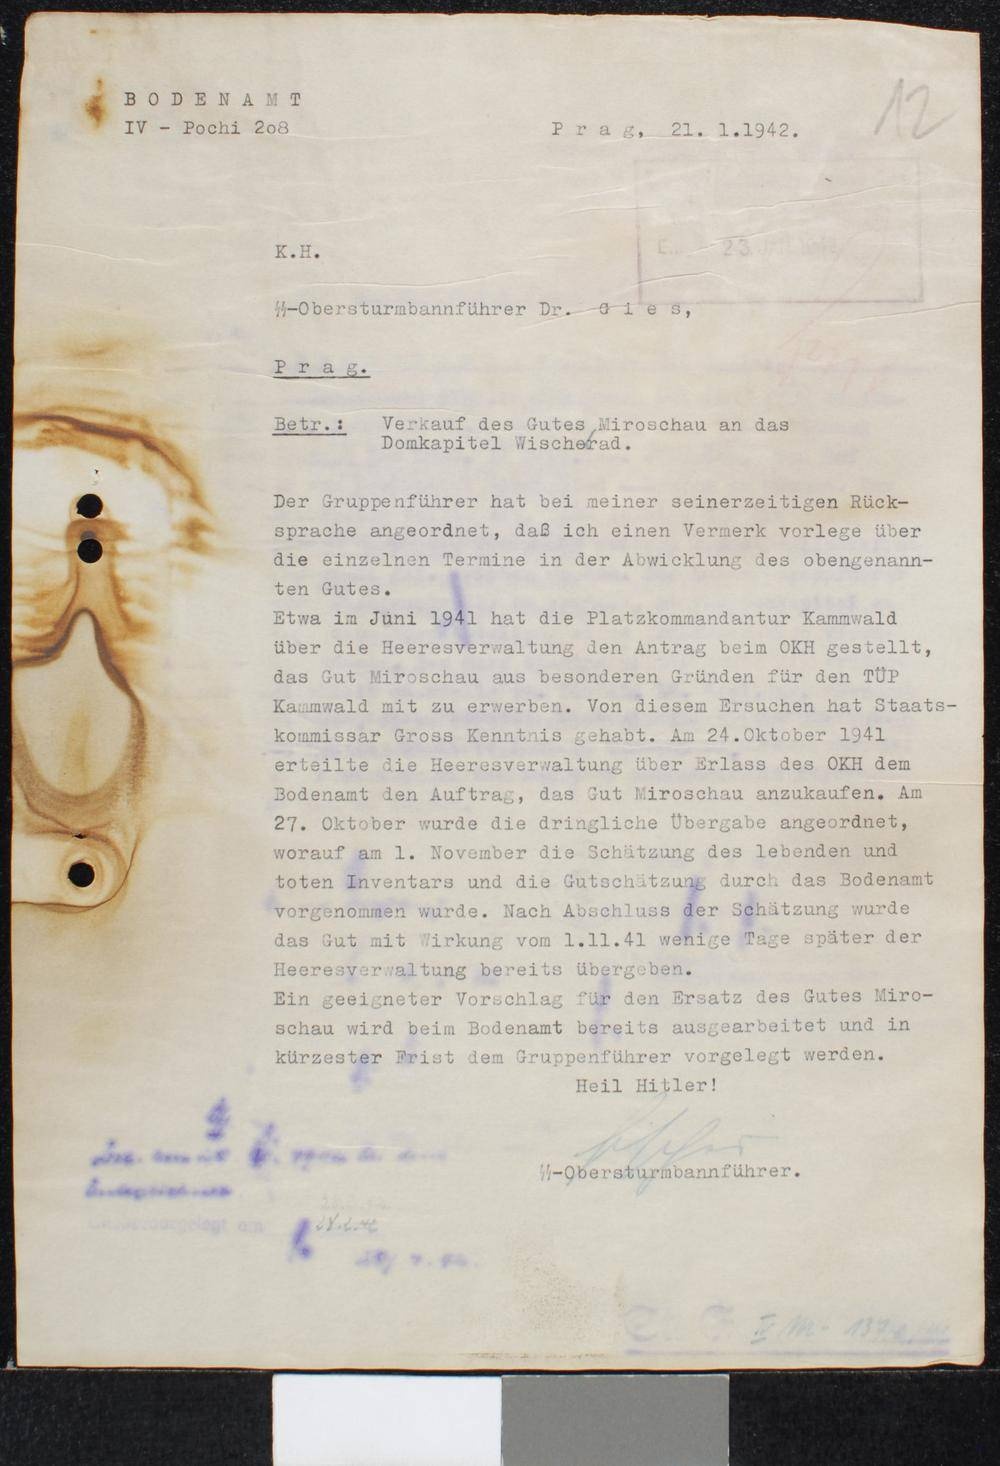 BODENAMT
IV - Pochi 2o8
Prag, 21. 1.1942.
12
23.
K.H.
SS-Obersturmbannführer Dr. Gies,
Prag.
Betr.: Verkauf des Gutes Miroschau an das
Domkapitel Wischerad.
Der Gruppenführer hat bei meiner seinerzeitigen Rück-
sprache angeordnet, daß ich einen Vermerk vorlege über
die einzelnen Termine in der Abwicklung des obengenann-
ten Gutes.
Etwa im Juni 1941 hat die Platzkommandantur Kammwald
über die Heeresverwaltung den Antrag beim OKH gestellt,
das Gut Miroschau aus besonderen Gründen für den TÜP
Kammwald mit zu erwerben. Von diesem Ersuchen hat Staats-
kommissar Gross Kenntnis gehabt. Am 24.Oktober 1941
erteilte die Heeresverwaltung über Erlass des OKH dem
Bodenamt den Auftrag, das Gut Miroschau anzukaufen. Am
27. Oktober wurde die dringliche Übergabe angeordnet,
worauf am 1. November die Schätzung des lebenden und
toten Inventars und die Gutschätzung durch das Bodenamt
vorgenommen wurde. Nach Abschluss der Schätzung wurde
das Gut mit Wirkung vom 1.11.41 wenige Tage später der
Heeresverwaltung bereits übergeben.
Ein geeigneter Vorschlag für den Ersatz des Gutes Miro-
schau wird beim Bodenamt bereits ausgearbeitet und in
kürzester Frist dem Gruppenführer vorgelegt werden.
Heil Hitler!
SS-Obersturmbannführer.